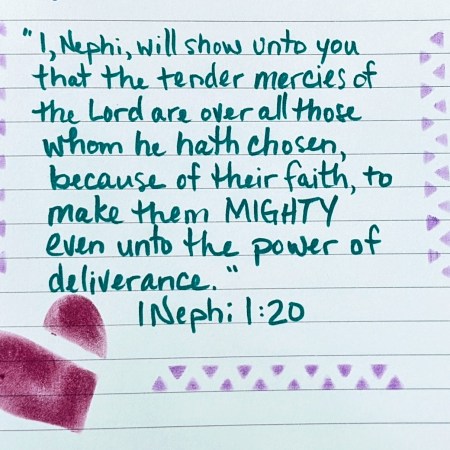 "I, Nephi, will show unto you
that the tender mercies of
the Lord are over all those
whom he hath chosen,
because of their faith, to
make them MIGHTY
even unto the power of
deliverance."
1 Nephi 1:20